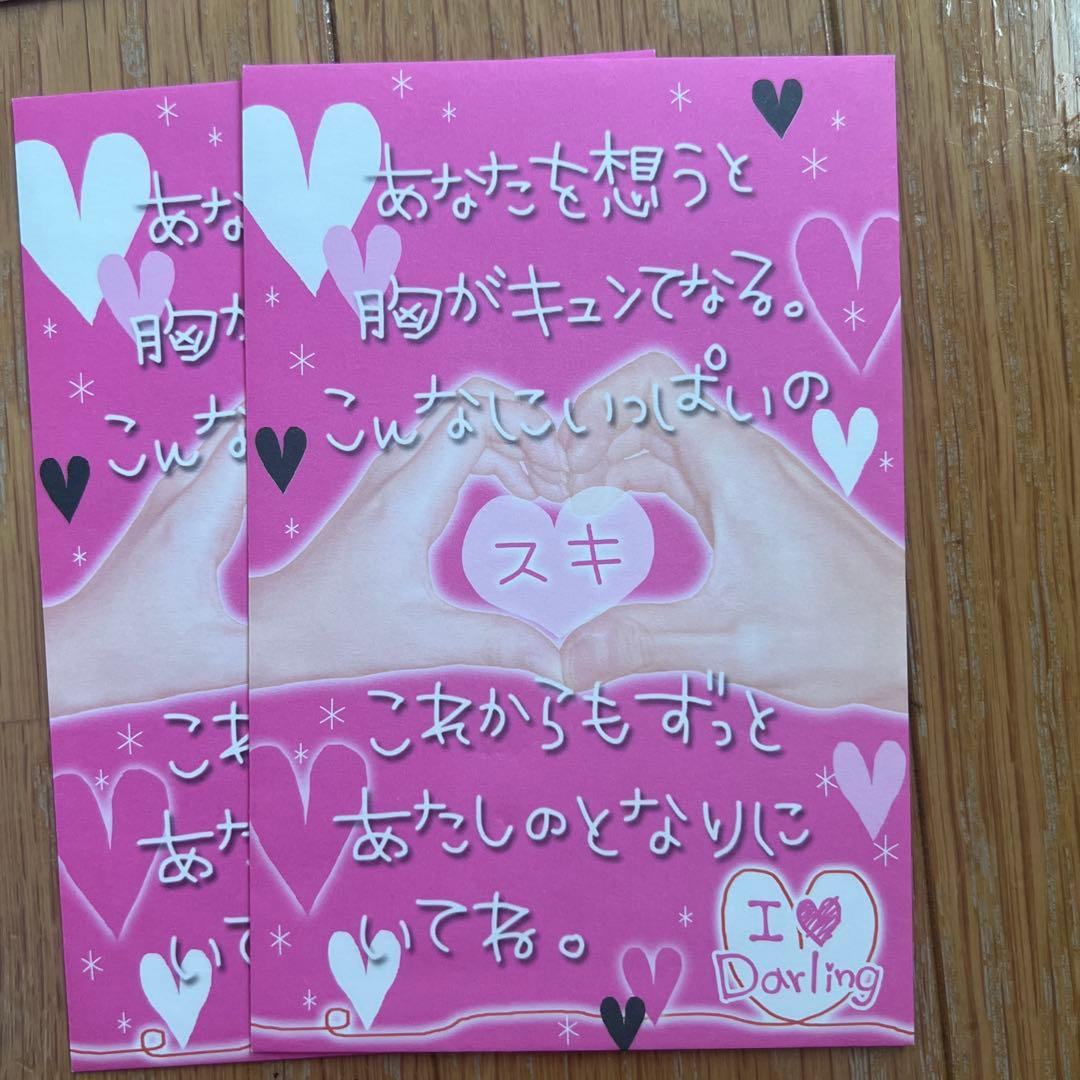 あなたを想うと
胸がキュンてなる。
こんなにいっぱいの
スキ
これからもずっと
あたしのとなりに
いてね。
I ♥
Darling
あな
胸か
こんな
これ
あた
いて